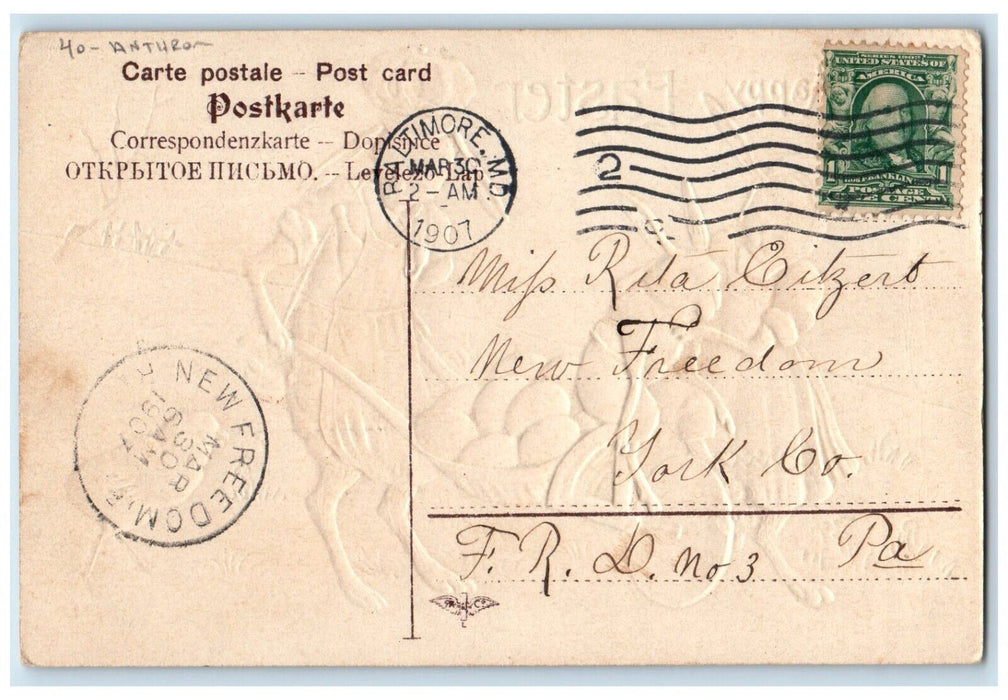 40 - ANTHRO
Carte postale – Post card
Postkarte
Correspondenzkarte -- Dopisnice
ОТКРЫТОЕ ПИСЬМО. -- Levelező-Lap
BALTIMORE, MD.
MAR 30
2 – AM
1907
2
SERIES 1902
UNITED STATES OF
AMERICA
1 FRANKLIN 1
POSTAGE
ONE CENT
Happy Easter
Miss Rita Eitzert
New Freedom
York Co.
F. R. D. No 3 Pa
NEW FREEDOM, PA
MAR
30
6 AM
1907